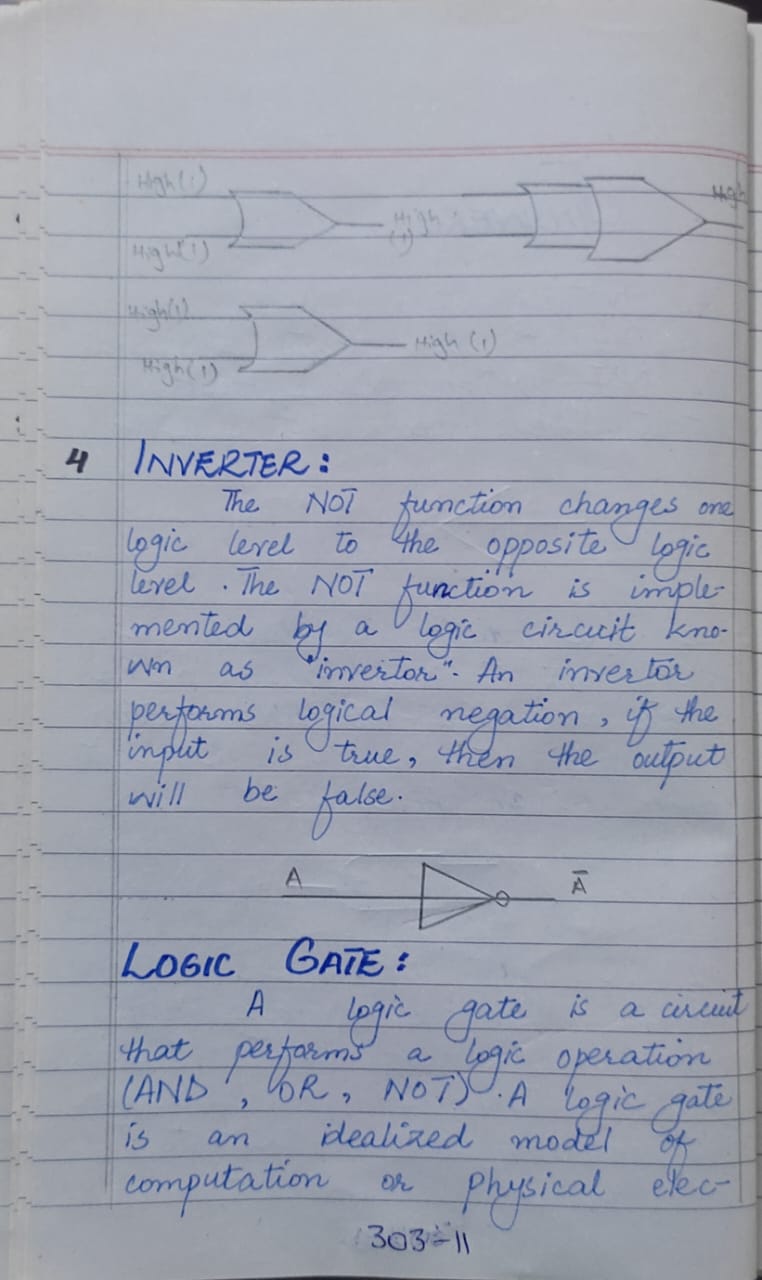 High(1)
High
High
(1)
High(1)
High(1)
High (1)
High(1)
4 INVERTER:
The NOT function changes one
logic level to the opposite logic
level. The NOT function is imple-
mented by a logic circuit kno-
wn as "invertor". An invertor
performs logical negation, if the
input is true, then the output
will be false.
A Ā
LOGIC GATE:
A logic gate is a circuit
that performs a logic operation
(AND, OR, NOT). A logic gate
is an idealized model of
computation or physical elec-
303-11